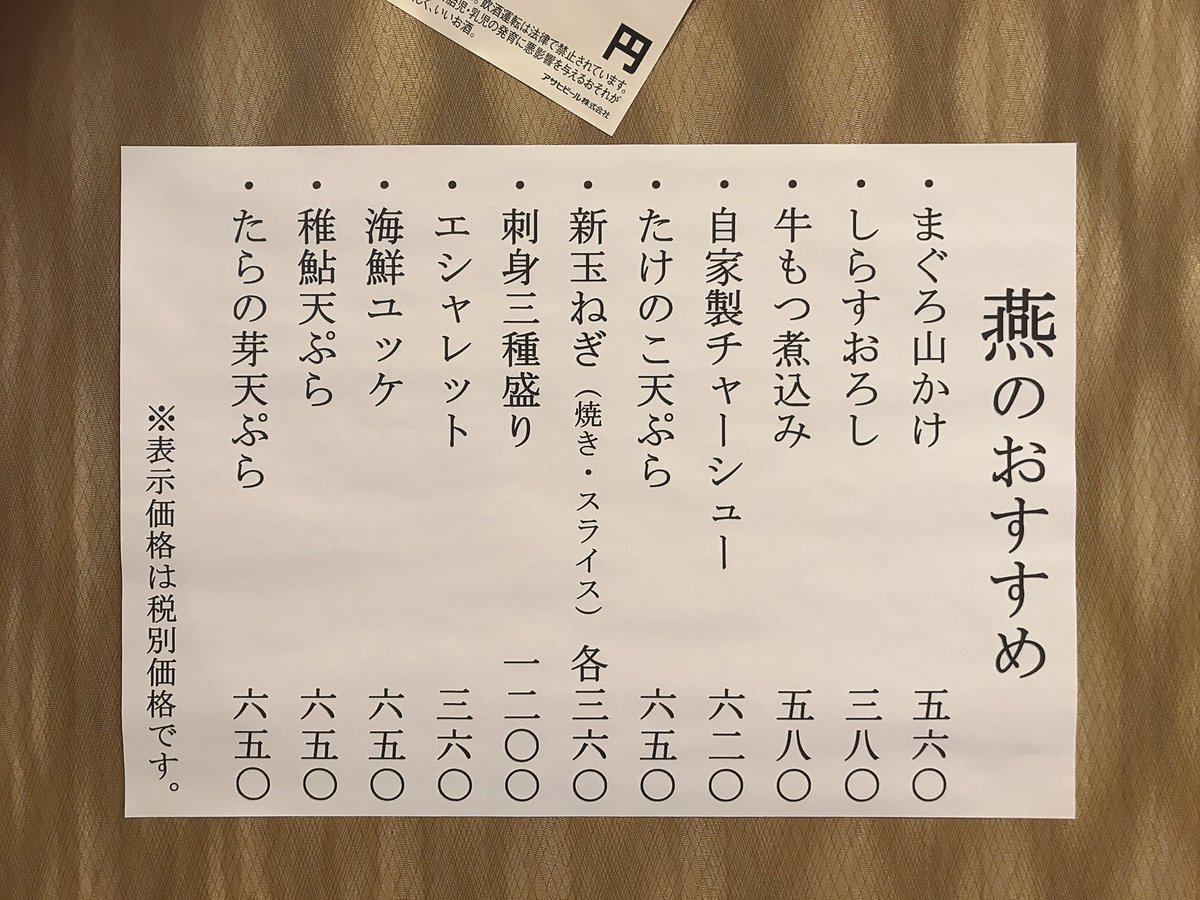 燕のおすすめ
・まぐろ山かけ 五六〇
・しらすおろし 三八〇
・牛もつ煮込み 五八〇
・自家製チャーシュー 六二〇
・たけのこ天ぷら 六五〇
・新玉ねぎ（焼き・スライス） 各三六〇
・刺身三種盛り 一二〇〇
・エシャレット 三六〇
・海鮮ユッケ 六五〇
・稚鮎天ぷら 六五〇
・たらの芽天ぷら 六五〇
※表示価格は税別価格です。
円
飲酒運転は法律で禁止されています。
胎児・乳児の発育に悪影響を与えるおそれが
く、いいお酒。
アサヒビール株式会社